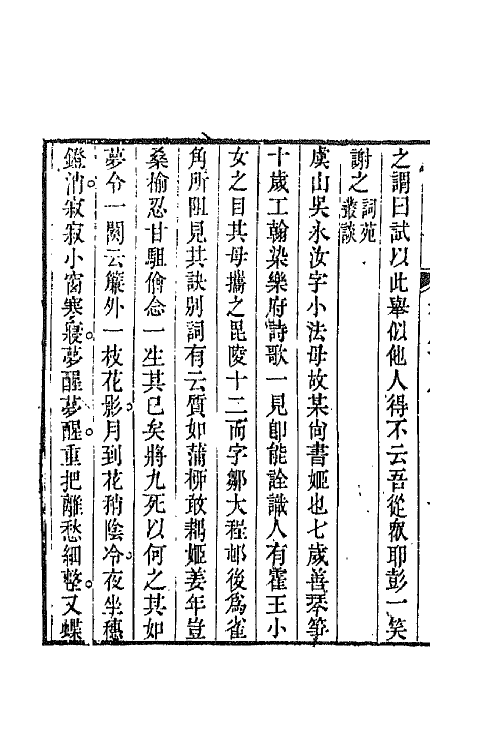 之謂曰試以此舉似他人得不云吾從叔耶彭一笑
謝之詞苑叢談
虞山吳永汝字小法母故某尚書姬也七歲善琴箏
十歲工翰染樂府詩歌一見卽能詮識人有霍王小
女之目其母攜之毘陵十二而字鄒大程邨後爲雀
角所阻見其訣別詞有云質如蒲柳敢耦姬姜年豈
桑榆忍甘駔儈念一生其已矣將九死以何之其如
夢令一闋云簾外一枝花影月到花稍陰冷夜坐穗
鐙消寂寂小窗寒寢夢醒夢醒重把離愁細整又蝶